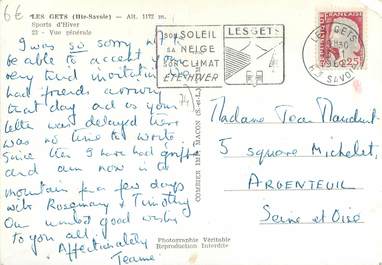 6€
LES GETS (Hte-Savoie) - Alt. 1172 m.
Sports d'Hiver
22 - Vue générale
I was so sorry not to
be able to accept your
very kind invitation. We
had friends arriving
that day and as your
letter was delayed there
was no time to write.
Since then I have had grippe
and am now in the
mountain for a few days
with Rosemary & Timothy
Our united good wishes
to you all.
Affectionately
Jeanne.
SON SOLEIL
SA NEIGE
SON CLIMAT
ETE HIVER
LES GETS
LES GETS
HTE SAVOIE
0,25
COMBIER IMP. MACON (S.-et-L.)
Photographie Véritable
Reproduction Interdite
Madame Jean Mauduit
5 square Michelet,
ARGENTEUIL
Seine et Oise